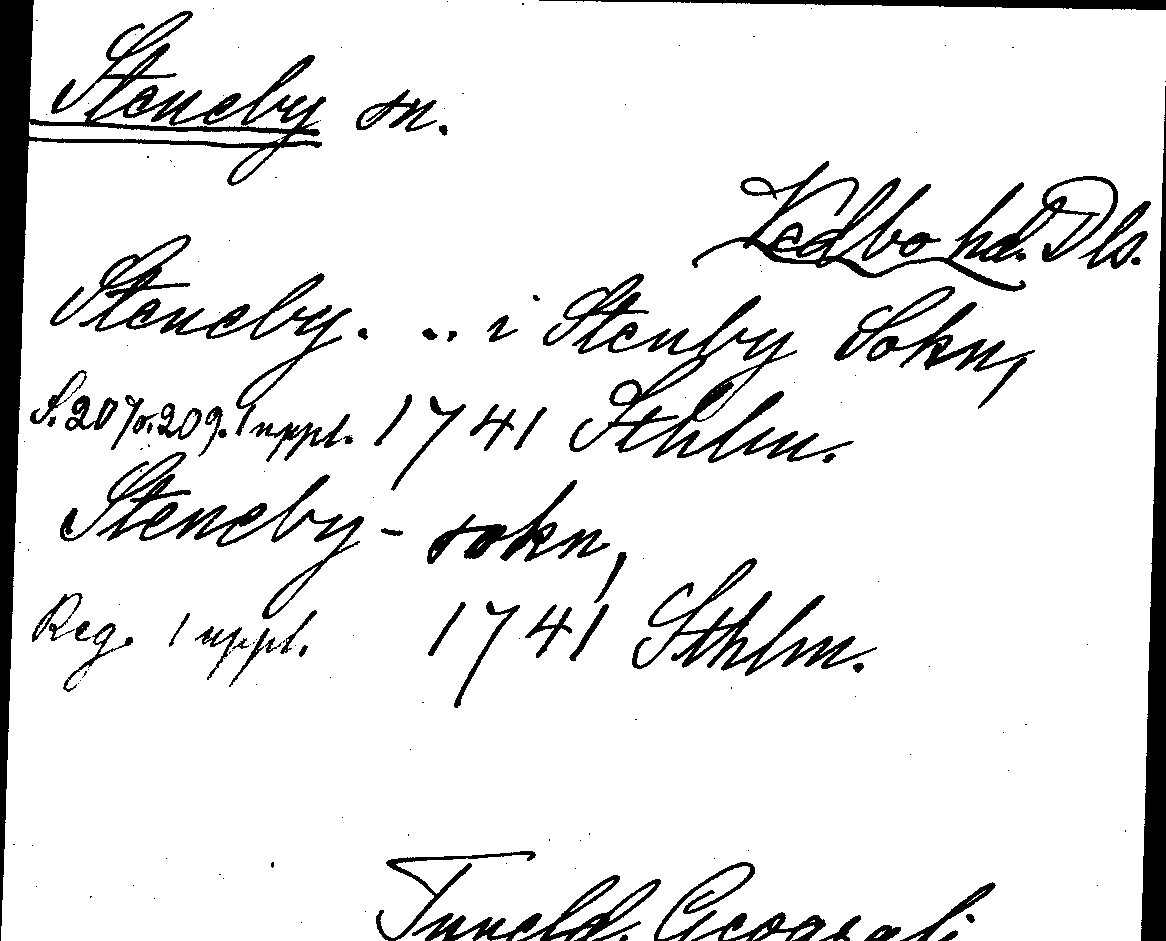 Steneby sn.
Vedbo hd. Dls.
Steneby. ... i Stenby Sokn,
S. 207 o. 209. 1 uppl. 1741 Sthlm.
Steneby - sokn,
Reg. 1 uppl. 1741 Sthlm.
Tuneld, Geografi